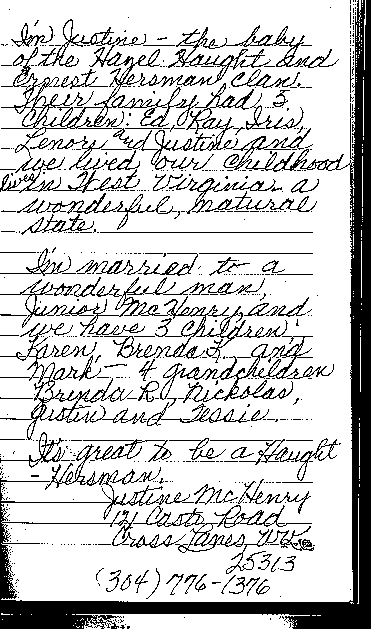 I'm Justine - the baby
of the Hazel Haught and
Ernest Hersman clan.
Their family had 5
children: Ed, Ray, Iris,
Lenore and Justine and
we lived our childhood
lives in West Virginia - a
wonderful, natural
state.
I'm married to a
wonderful man,
Junior McHenry and
we have 3 children:
Karen, Brenda L. and
Mark - 4 grandchildren
Brenda R., Nickolas,
Justin and Jessie.
It's great to be a Haught
- Hersman.
Justine McHenry
121 Casto Road
Cross Lanes, WV
25313
(304) 776-1376